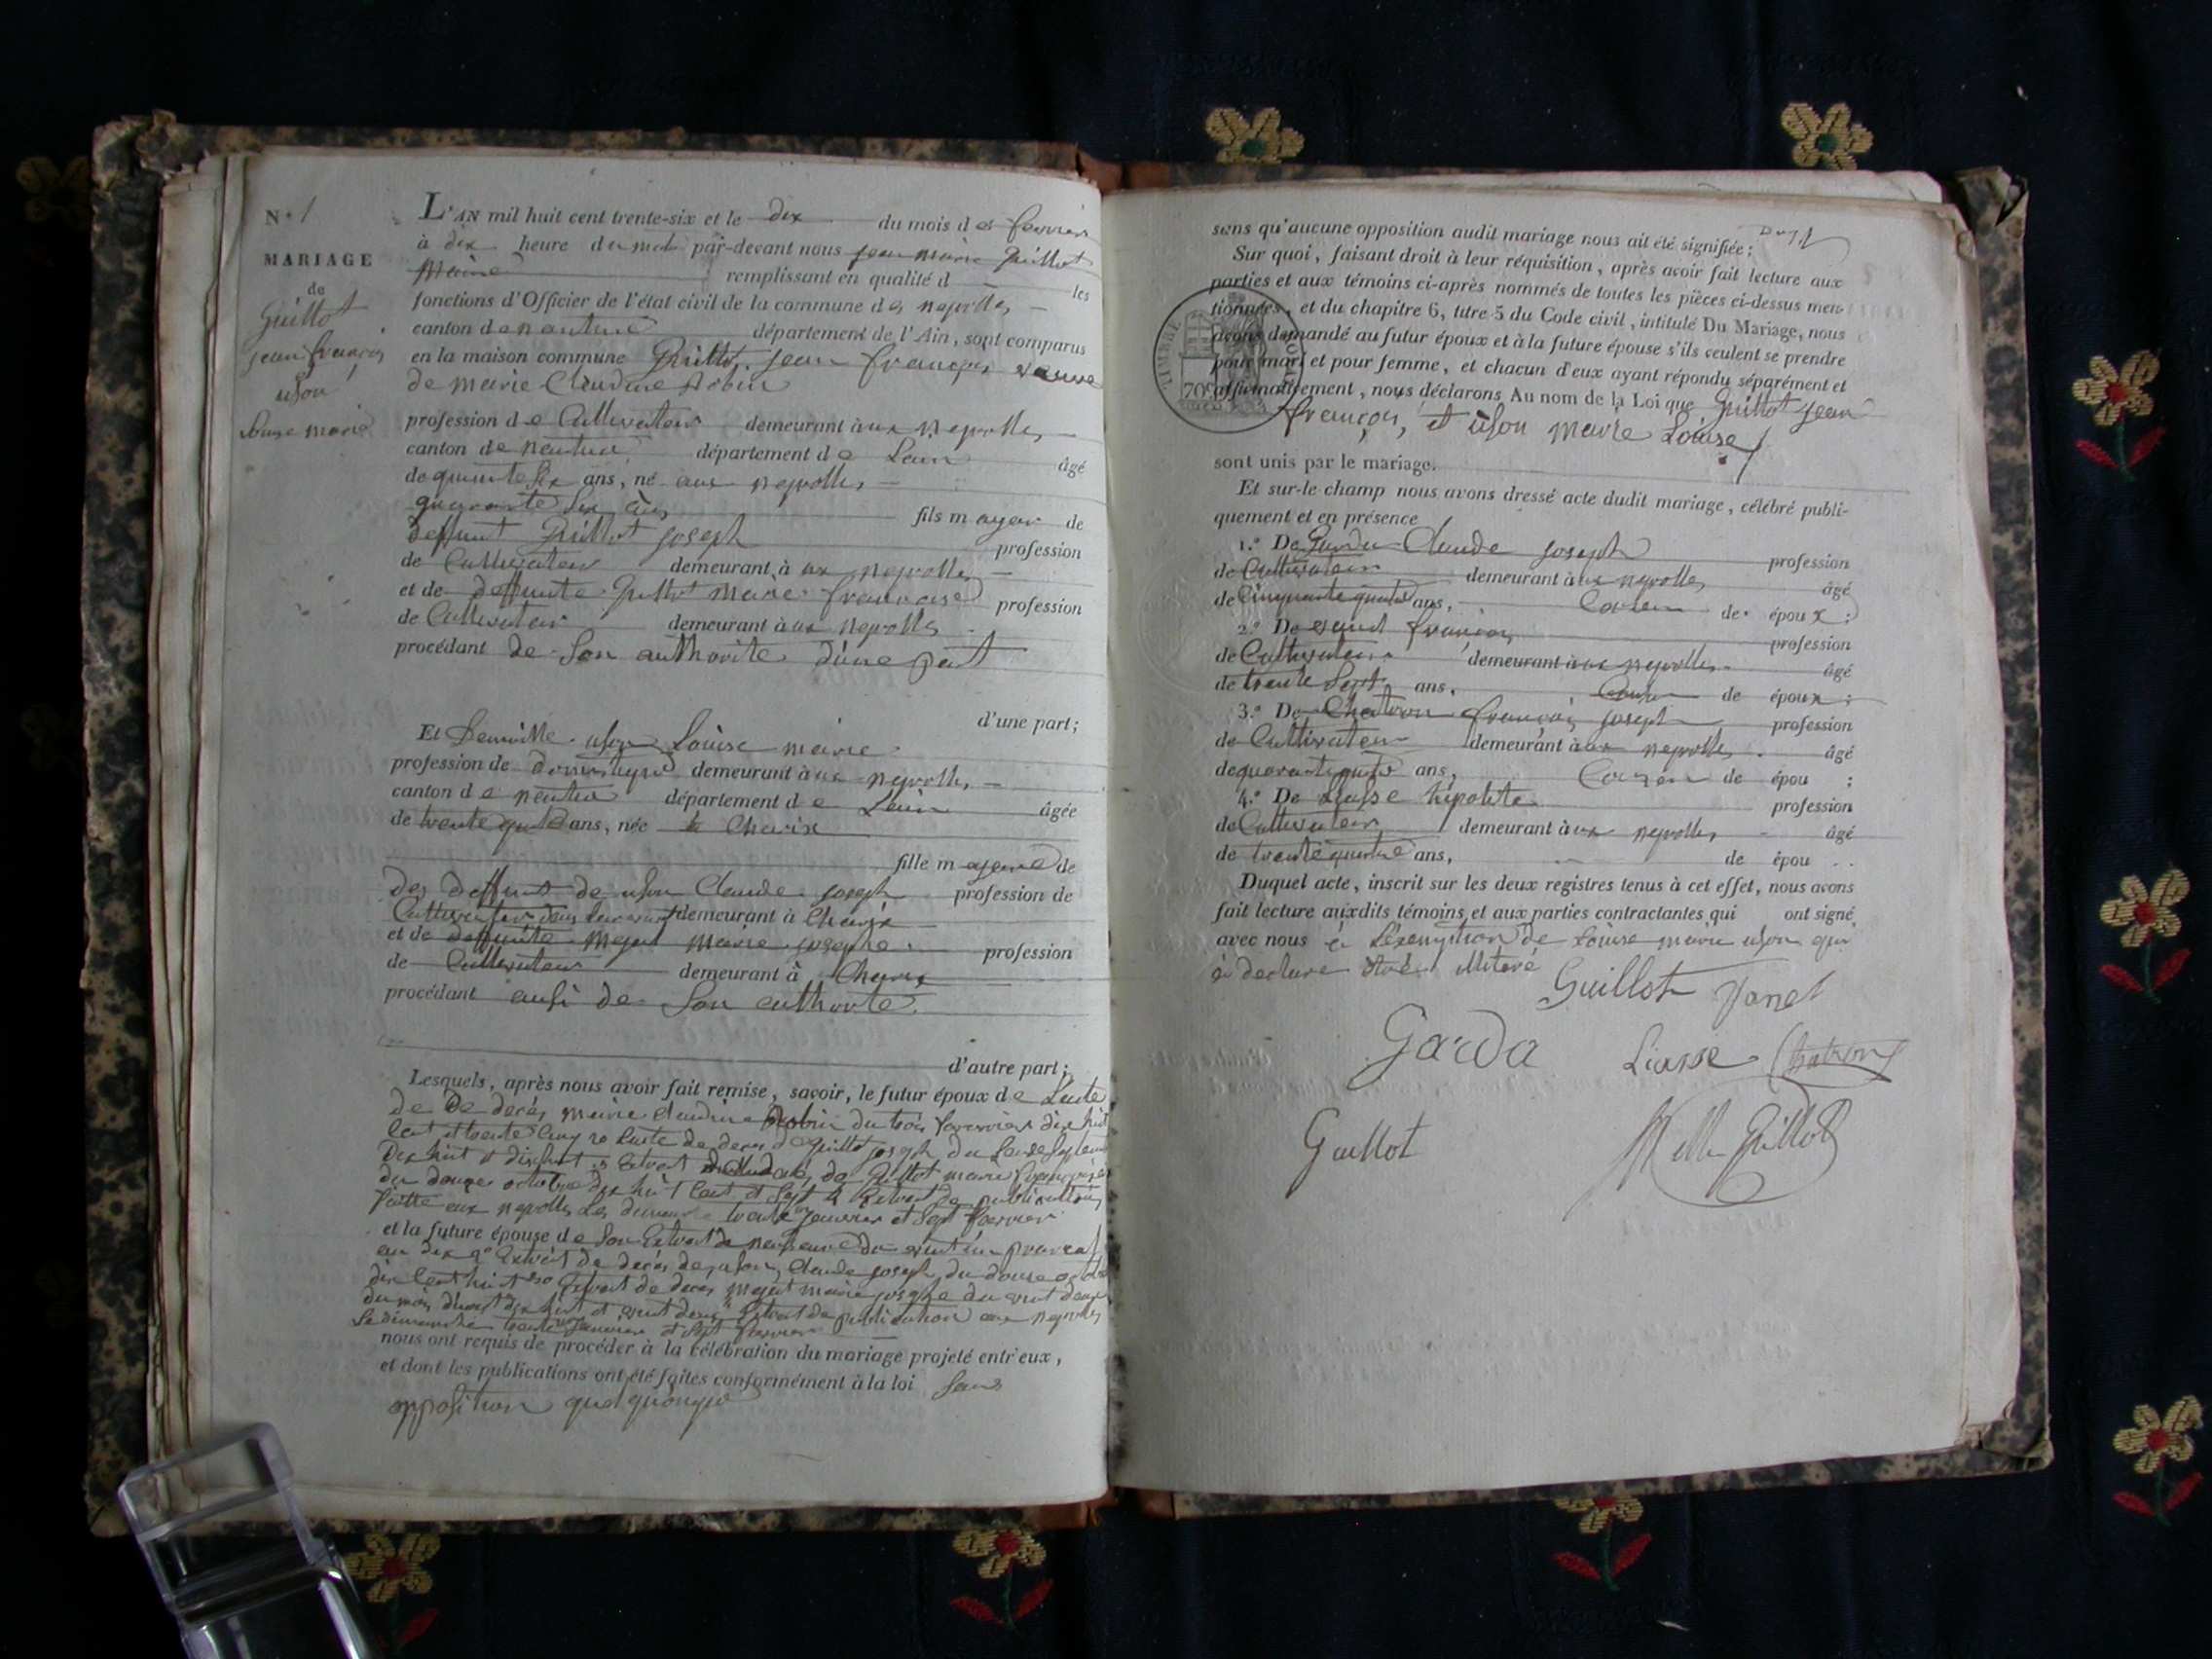 N° 1
MARIAGE
de
Guillot
jean françois
et
uson
Louise marie
L'AN mil huit cent trente-six et le dix du mois de fevrier
à dix heure du mat par-devant nous jean marie Guillot
Maire remplissant en qualité d les
fonctions d'Officier de l'état civil de la commune des neyrolles
canton de nantua département de l'Ain, sont comparus
en la maison commune Guillot jean françois
de marie Claudine Robin
profession de Cultivateur demeurant à ux neyrolles
canton de nantua département de Lain âgé
de ans, né aux neyrolles
quarante six ans fils mageur de
deffunt Guillot joseph profession
de Cultivateur demeurant à ux neyrolles
et de deffunte Guillot marie francoise profession
de Cultivateur demeurant à ux neyrolles
procédant de son authorité d'une part
d'une part;
Et Demoille uson Louise marie
profession de domestique demeurant à ux neyrolles
canton de nantua département de Lain âgée
de trente quatre ans, née à Charix
fille mageure de
des deffunt de uson Claude joseph profession de
Cultivateur demeurant à Charix
et de deffunte marie josephe profession
de Cultivateur demeurant à Charix
procédant ausi de son authorité
d'autre part;
Lesquels, après nous avoir fait remise, savoir, le futur époux de Lacte
de De decés marie claudine Robin du trois fevrier dix huit
cent et trente cinq 2o Lacte de deces de Guillot joseph du septembre
dix huit et dix huit 3 Extrait de Guillot marie françoise
du douze octobre dix huit cent et sept 4 Extrait de publication
faitte aux neyrolles Les trente un janvier et sept fevrier
et la future épouse de son Extrait de du vint un
an dix 2o Extrait de decés de uson Claude joseph du douze
dix cent huit 3o Extrait de deces marie josephe du vint deux
du mois dix huit et vint deux Extrait de publication aux neyrolles
Le dimanche trente un janvier et sept fevrier
nous ont requis de procéder à la célébration du mariage projeté entr'eux,
et dont les publications ont été faites conformément à la loi sans
opposition quelquonque
sans qu'aucune opposition audit mariage nous ait été signifiée;
Sur quoi, faisant droit à leur réquisition, après avoir fait lecture aux
parties et aux témoins ci-après nommés de toutes les pièces ci-dessus men-
tionnées, et du chapitre 6, titre 5 du Code civil, intitulé Du Mariage, nous
avons demandé au futur époux et à la future épouse s'ils veulent se prendre
pour mari et pour femme, et chacun d'eux ayant répondu séparément et
affirmativement, nous déclarons Au nom de la Loi que Guillot jean
françois, et uson marie Louise
TIMBRE
70c
sont unis par le mariage.
Et sur-le champ nous avons dressé acte dudit mariage, célébré publi-
quement et en présence
1.° De Garda Claude joseph profession
de Cultivateur demeurant à ux neyrolles âgé
de Cinquante quatre ans, Cousin de époux :
2.° De françois profession
de Cultivateur demeurant à ux neyrolles âgé
de trente sept ans, Cousin de époux :
3.° De Chatron françois joseph profession
de Cultivateur demeurant à ux neyrolles âgé
de quarante quatre ans, Couzin de épou ;
4.° De Liasse hipolite profession
de Cultivateur demeurant à ux neyrolles âgé
de trente quatre ans, de épou
Duquel acte, inscrit sur les deux registres tenus à cet effet, nous avons
fait lecture auxdits témoins et aux parties contractantes qui ont signé
avec nous à Lexemption de Louise marie uson qui
à declaré illiteré
Guillot
Garda Liasse Chatron
Guillot Guillot